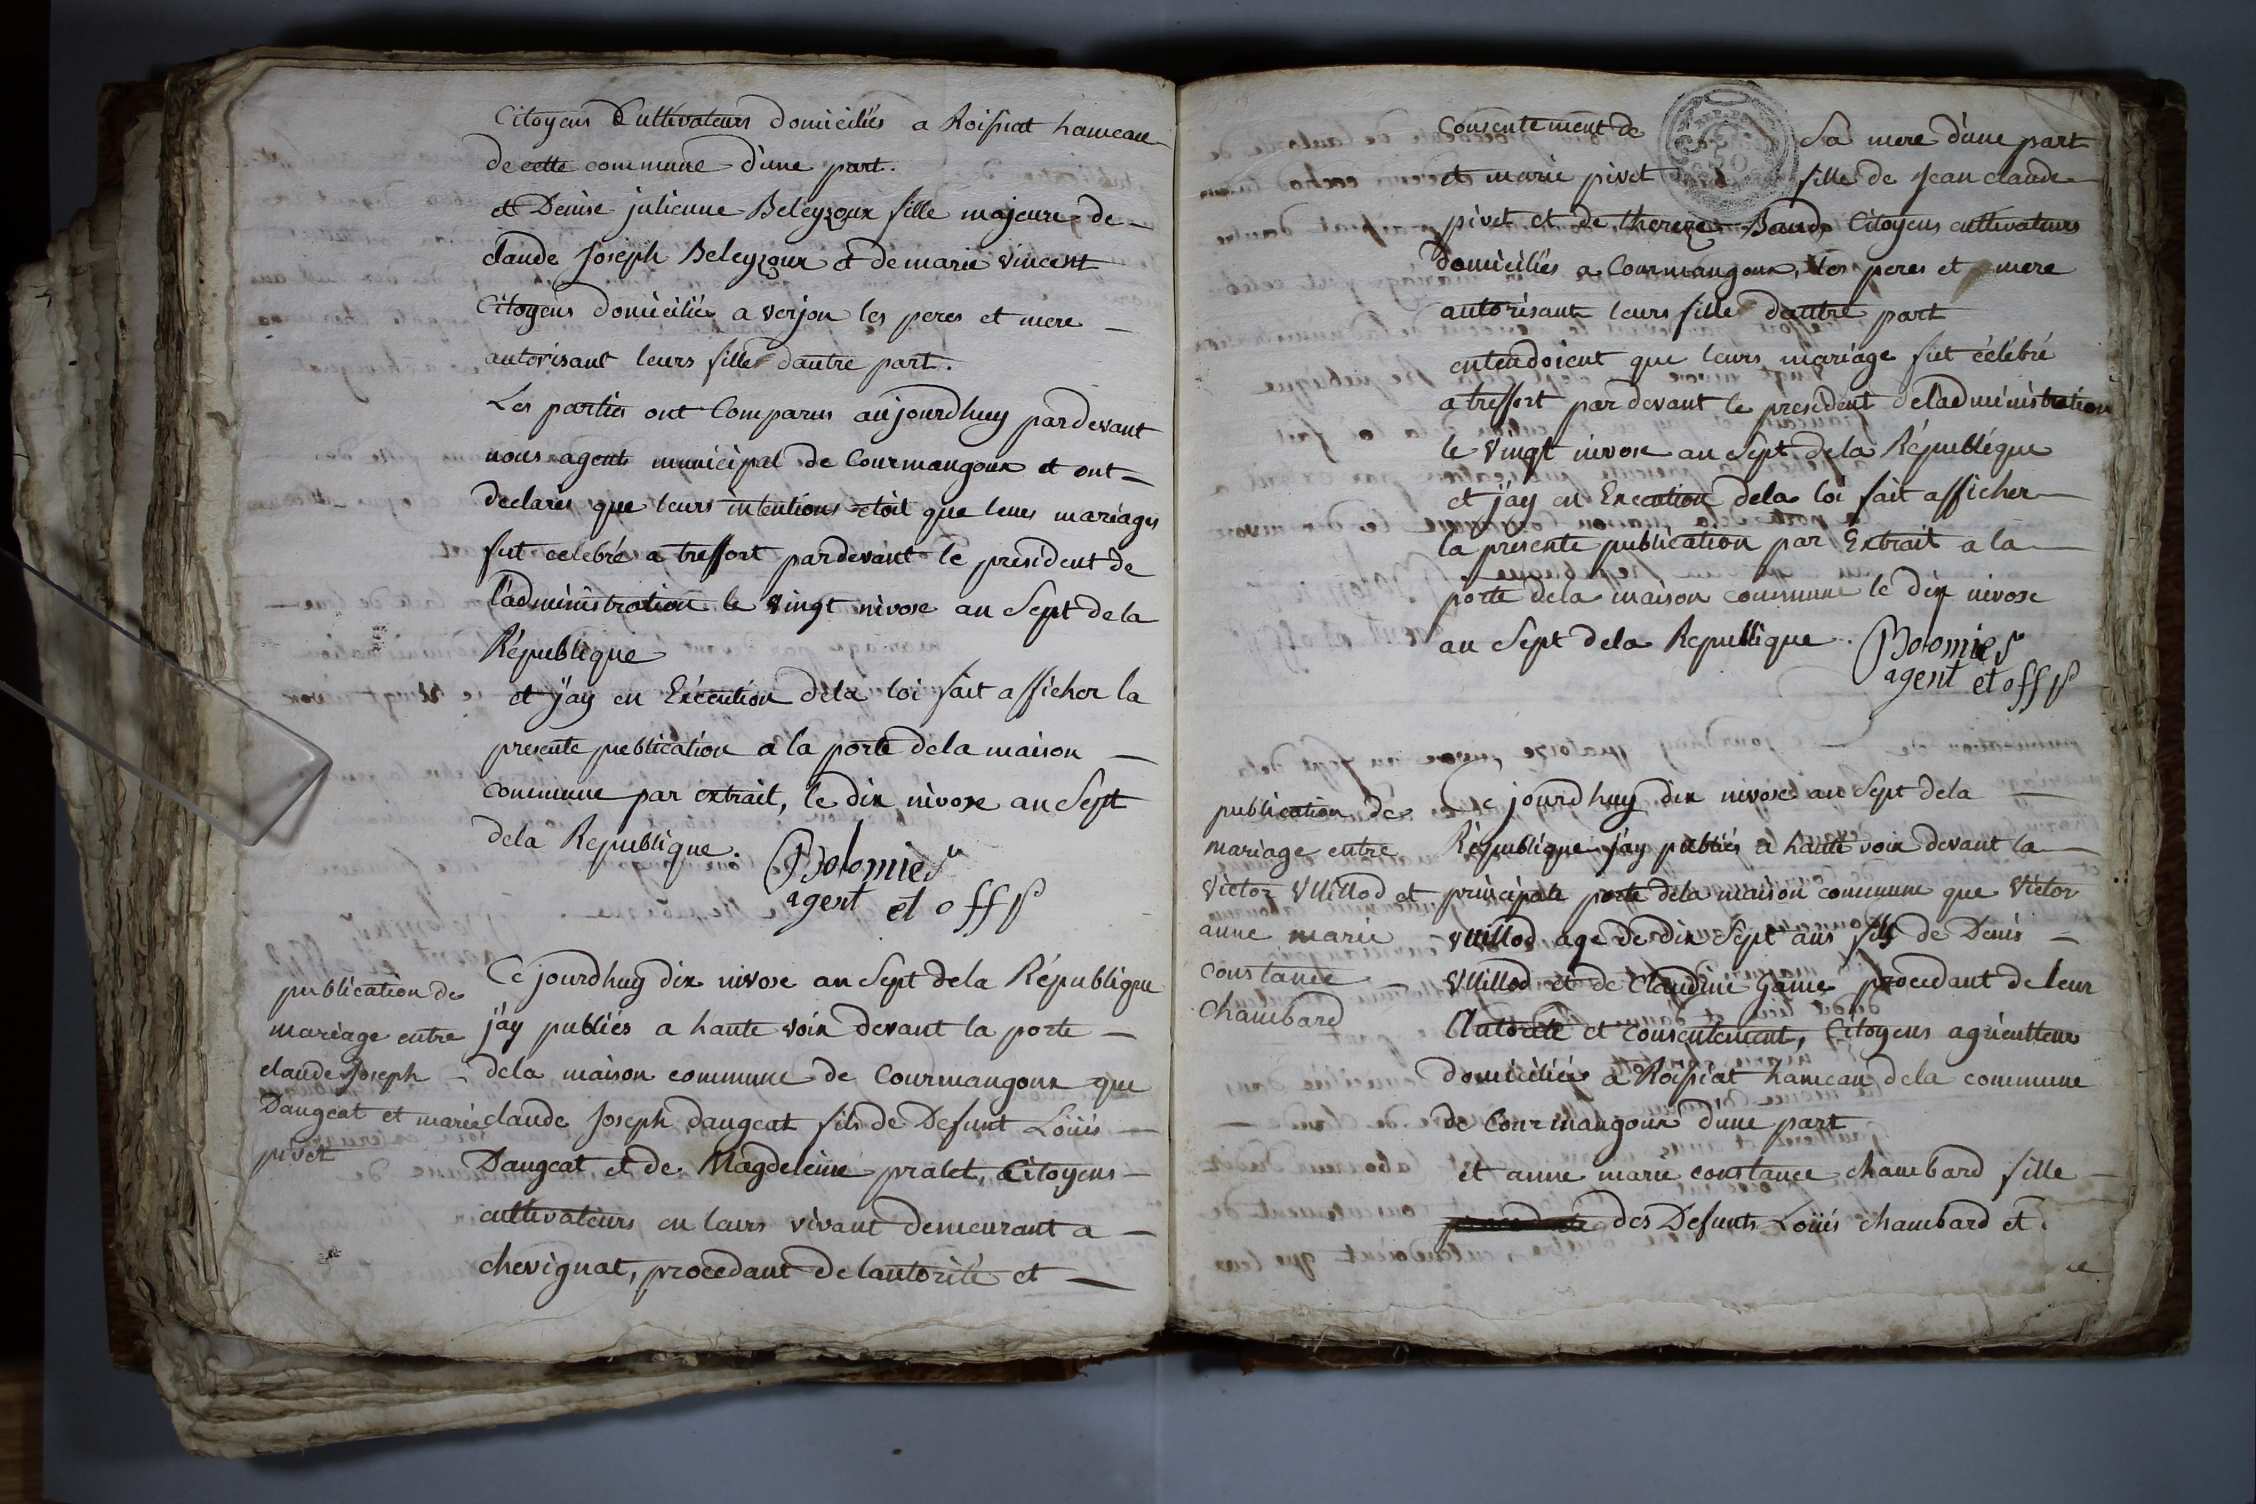 Citoyens Cultivateurs domiciliés a Roissiat hameau
de cette commune d'une part.
et Denise julienne Beleyzoux fille majeure de
claude Joseph Beleyzoux et de marie vincent
Citoyens domiciliés a verjon les peres et mere
autorisant leurs fille dautre part.
Les parties ont Comparus aujourdhuy pardevant
nous agent municipal de Courmangoux et ont
declarés que leurs intentions etoit que leurs mariages
fut celebré a treffort pardevant le president de
l'administration le vingt nivose an Sept de la
République
et j'ay en Execution dela loi fait afficher la
presente publication a la porte dela maison
commune par extrait, le dix nivose an Sept
dela Republique.
Bolomier
agent et off p
publication de
mariage entre
claude Joseph
Daugeat et marie
pivet
Ce jourdhuy dix nivose an Sept dela République
j'ay publiés a haute voix devant la porte
dela maison commune de Courmangoux que
claude Joseph daugeat fils de Defunt Loüis
Daugeat et de Magdeleine pralet, Citoyens
cultivateurs en leurs vivant demeurant a
chevignat, procedant de lautorité et
Consentement de sa mere d'une part
et marie pivet fille de Jean claude
pivet et de thereze Baude Citoyens cultivateurs
domiciliés a Courmangoux, les peres et mere
autorisant leurs fille dautre part
entendoient que leurs mariage fut célébré
a treffort pardevant le president deladministration
le vingt nivose an Sept dela Républéque
et j'ay en Execution dela loi fait afficher
la presente publication par Extrait a la
porte dela maison commune le dix nivose
an Sept dela Republique.
Bolomier
agent et off p
publication de
mariage entre
Victor Vuillod et
anne marie
constance
chambard
Ce jourdhuy dix nivose an Sept dela
République j'ay publiés a haute voix devant la
principale porte dela maison commune que Victor
vuillod age de dix Sept ans fils de Denis
Vuillod et de Claudine Game procedant de leur
Autorité et consentement, Citoyens agriculteur
domiciliés a Roissiat hameau dela commune
de Courmangoux dune part
et anne marie constance chambard fille
des Defunts Loüis chambard et